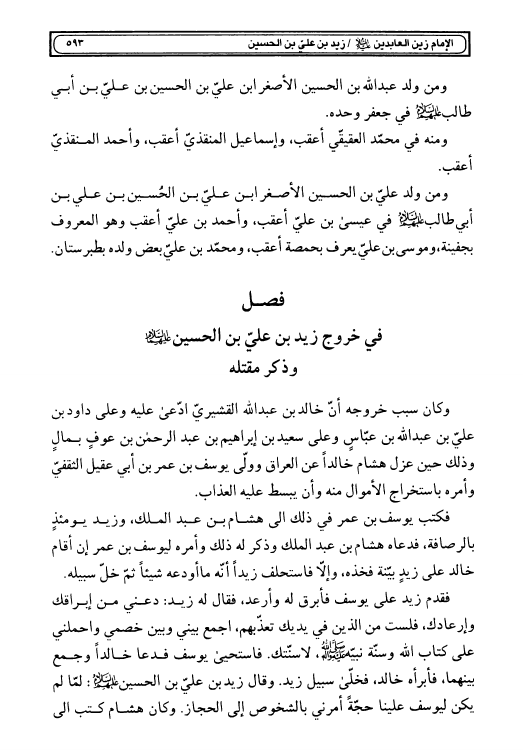 الإمام زين العابدين عليه السلام / زيد بن عليّ بن الحسين ٥٩٣
ومن ولد عبدالله بن الحسين الأصغر ابن عليّ بن الحسين بن عليّ بن أبي
طالب عليهم السلام في جعفر وحده.
ومنه في محمّد العقيقّي أعقب، وإسماعيل المنقذيّ أعقب، وأحمد المنقذيّ
أعقب.
ومن ولد عليّ بن الحسين الأصغر ابن عليّ بن الحُسين بن علي بن
أبي طالب عليهم السلام في عيسىٰ بن عليّ أعقب، وأحمد بن عليّ أعقب وهو المعروف
بجفينة، وموسى بن عليّ يعرف بحمصة أعقب، ومحمّد بن عليّ بعض ولده بطبرستان.
فصل
في خروج زيد بن عليّ بن الحسين عليهم السلام
وذكر مقتله
وكان سبب خروجه أنّ خالد بن عبدالله القشيريّ ادّعىٰ عليه وعلى داود بن
عليّ بن عبدالله بن عبّاس وعلى سعيد بن إبراهيم بن عبد الرحمٰن بن عوفٍ بمالٍ
وذلك حين عزل هشام خالداً عن العراق وولّى يوسف بن عمر بن أبي عقيل الثقفيّ
وأمره باستخراج الأموال منه وأن يبسط عليه العذاب.
فكتب يوسف بن عمر في ذلك الى هشام بن عبد الملك، وزيد يومئذٍ
بالرصافة، فدعاه هشام بن عبد الملك وذكر له ذلك وأمره ليوسف بن عمر إن أقام
خالد على زيدٍ بيّنة فخذه، وإلّا فاستحلف زيداً أنّه ماأودعه شيئاً ثمّ خلّ سبيله.
فقدم زيد على يوسف فأبرق له وأرعد، فقال له زيد: دعني من إبراقك
وإرعادك، فلست من الذين في يديك تعذّبهم، اجمع بيني وبين خصمي واحملني
على كتاب الله وسنّة نبيّه صلى الله عليه وآله، لاسنّتك. فاستحيىٰ يوسف فدعا خالداً وجمع
بينهما، فأبرأه خالد، فخلّىٰ سبيل زيد. وقال زيد بن عليّ بن الحسين عليهم السلام: لمّا لم
يكن ليوسف علينا حجّةً أمرني بالشخوص إلى الحجاز. وكان هشام كتب الى